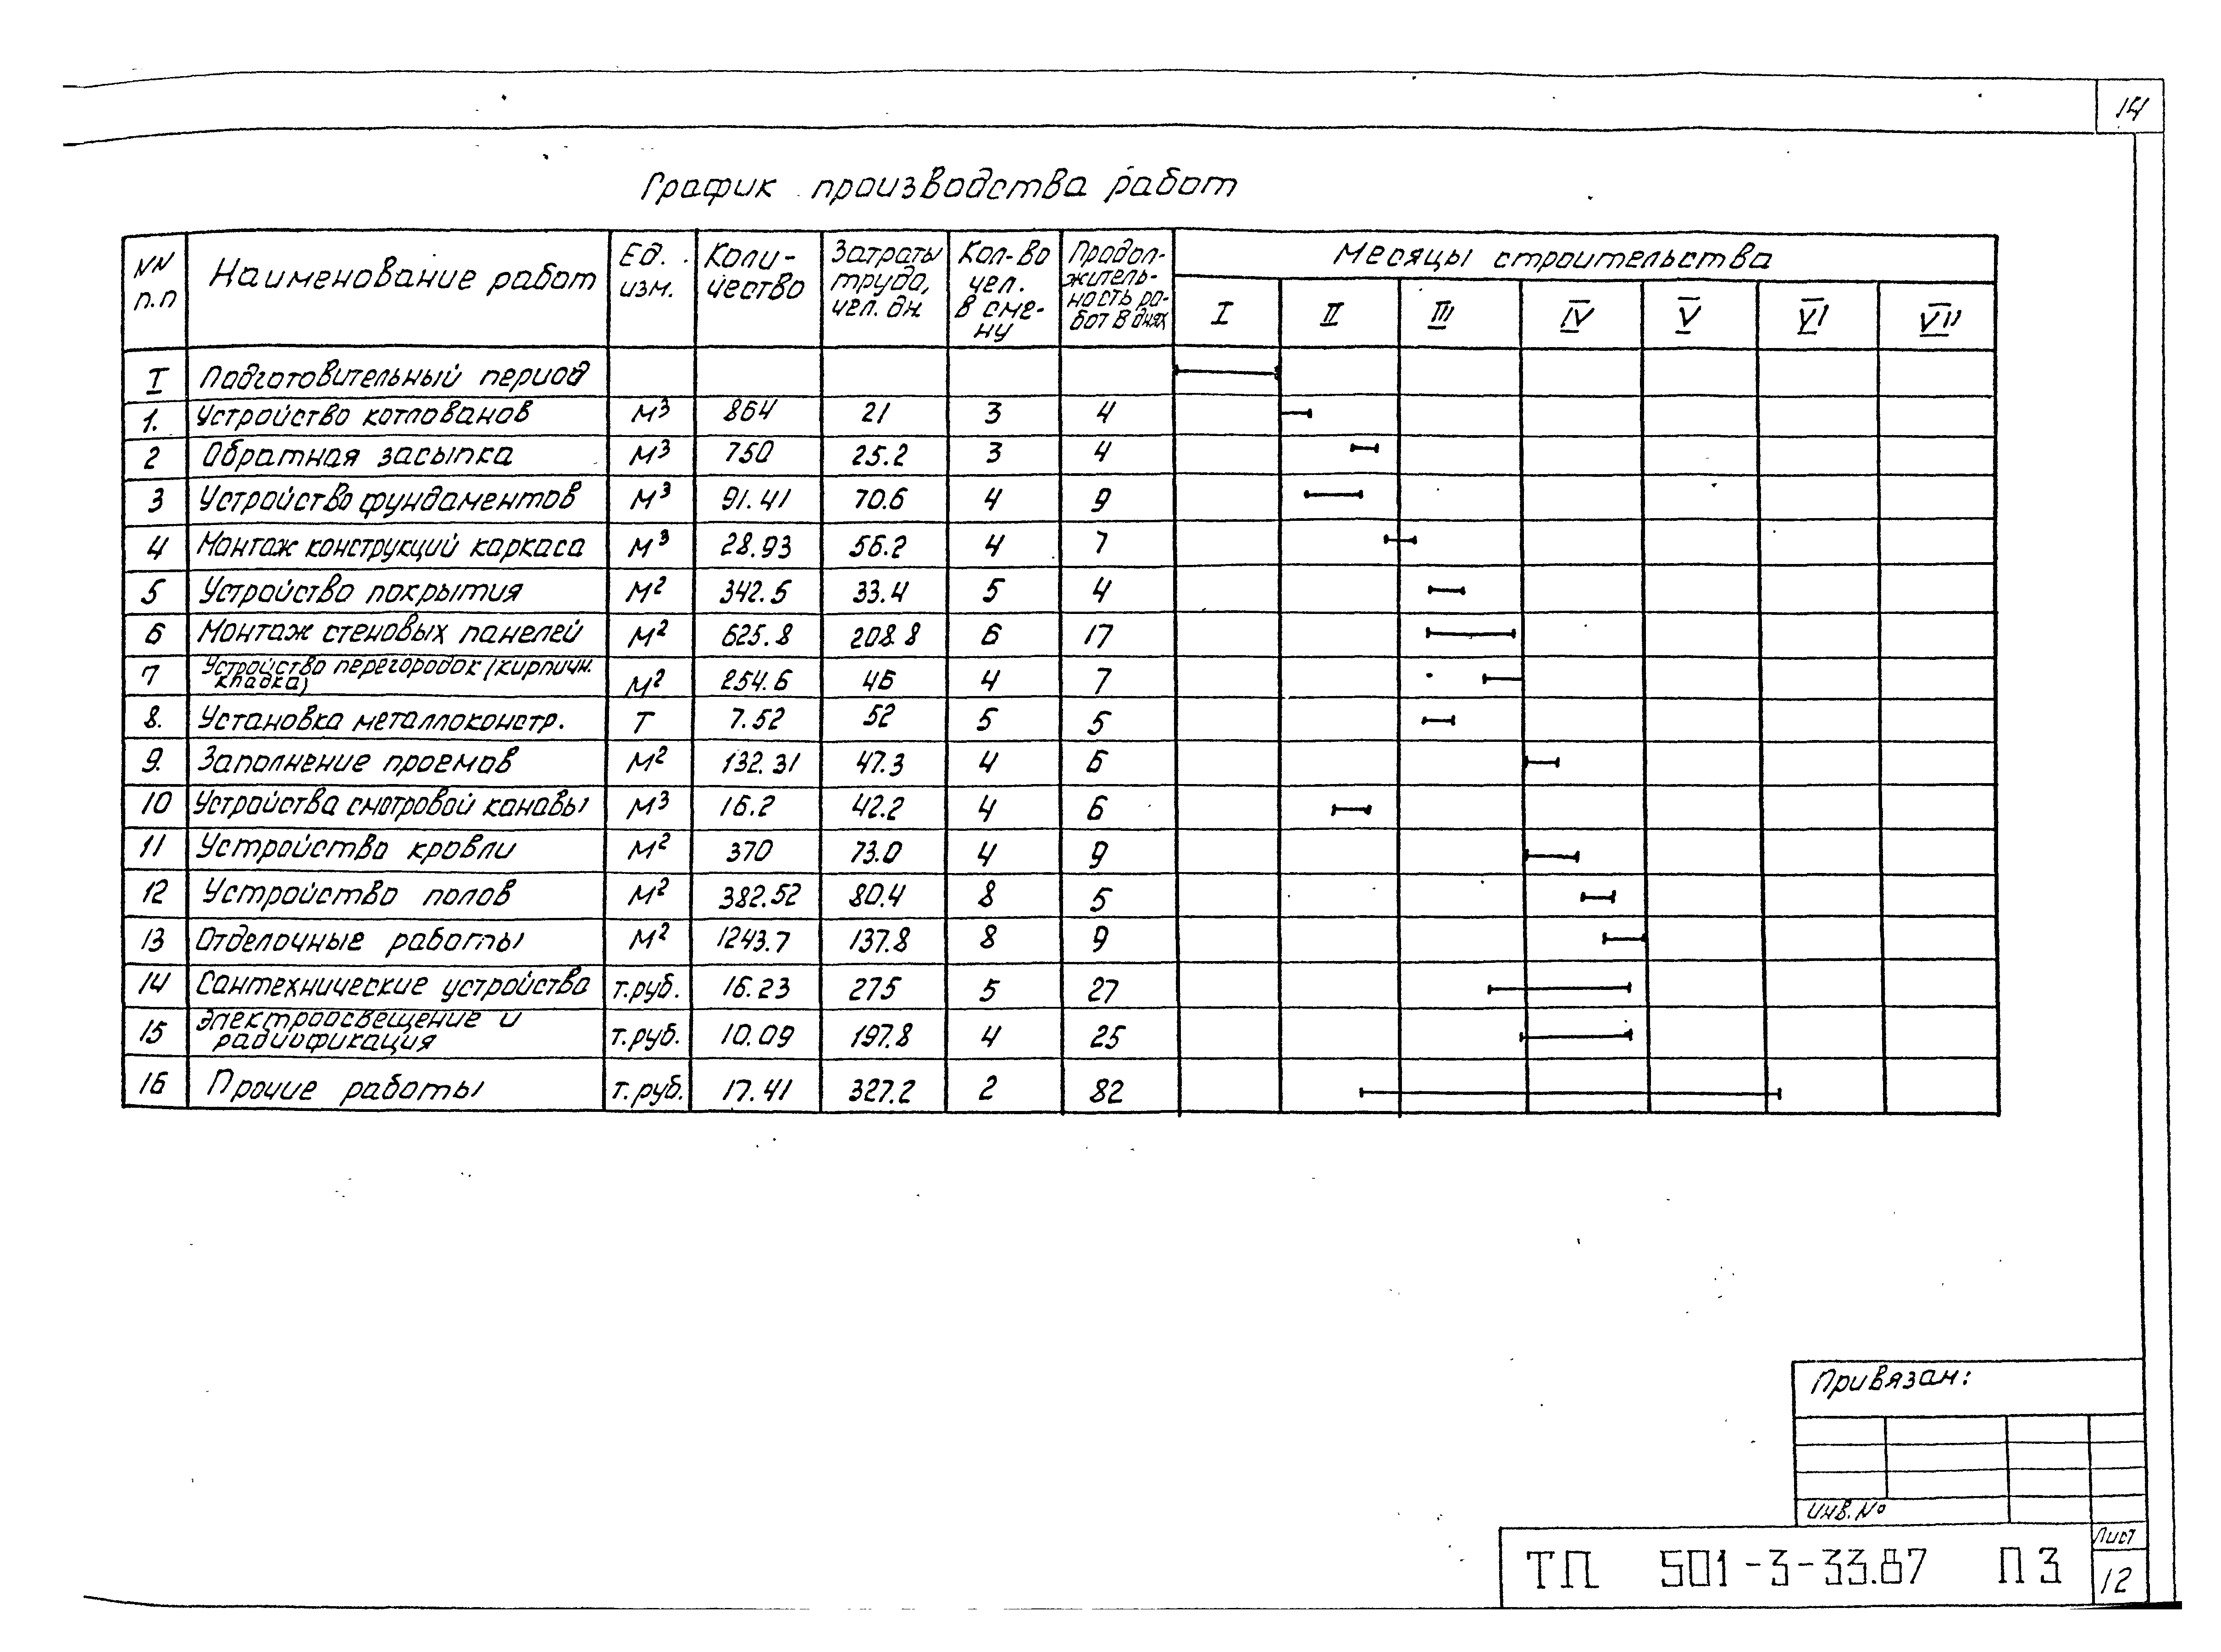 14
График производства работ
NN п.п | Наименование работ | Ед. изм. | Коли-чество | Затраты труда, чел. дн. | Кол-во чел. в сме-ну | Продол-житель-ность ра-бот в днях | Месяцы строительства
I II III IV V VI VII
I Подготовительный период
1. Устройство котлованов м3 864 21 3 4
2 Обратная засыпка м3 750 25.2 3 4
3 Устройство фундаментов м3 91.41 70.6 4 9
4 Монтаж конструкций каркаса м3 28.93 56.2 4 7
5 Устройство покрытия м2 342.5 33.4 5 4
6 Монтаж стеновых панелей м2 625.8 208.8 6 17
7 Устройство перегородок (кирпичн. кладка) м2 254.6 46 4 7
8. Установка металлоконстр. т 7.52 52 5 5
9. Заполнение проемов м2 132.31 47.3 4 6
10 Устройства смотровой канавы м3 16.2 42.2 4 6
11 Устройство кровли м2 370 73.0 4 9
12 Устройство полов м2 382.52 80.4 8 5
13 Отделочные работы м2 1243.7 137.8 8 9
14 Сантехнические устройства т.руб. 16.23 275 5 27
15 Электроосвещение и радиофикация т.руб. 10.09 197.8 4 25
16 Прочие работы т.руб. 17.41 327.2 2 82
Привязан:
Инв. №
ТП 501-3-33.87 ПЗ
Лист
12